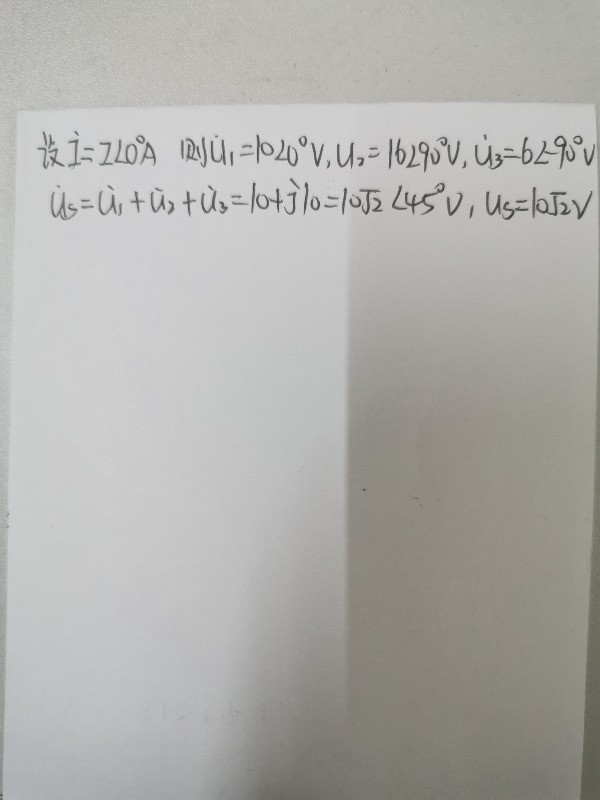 设İ=I∠0°A 则U̇₁=10∠0°V, U₂=16∠90°V, U̇₃=6∠-90°V
U̇s=U̇₁+U̇₂+U̇₃=10+j10=10√2∠45°V, Us=10√2V